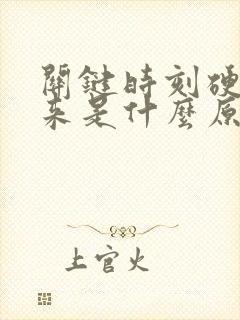 關鍵時刻硬
来是什麼原
上官火